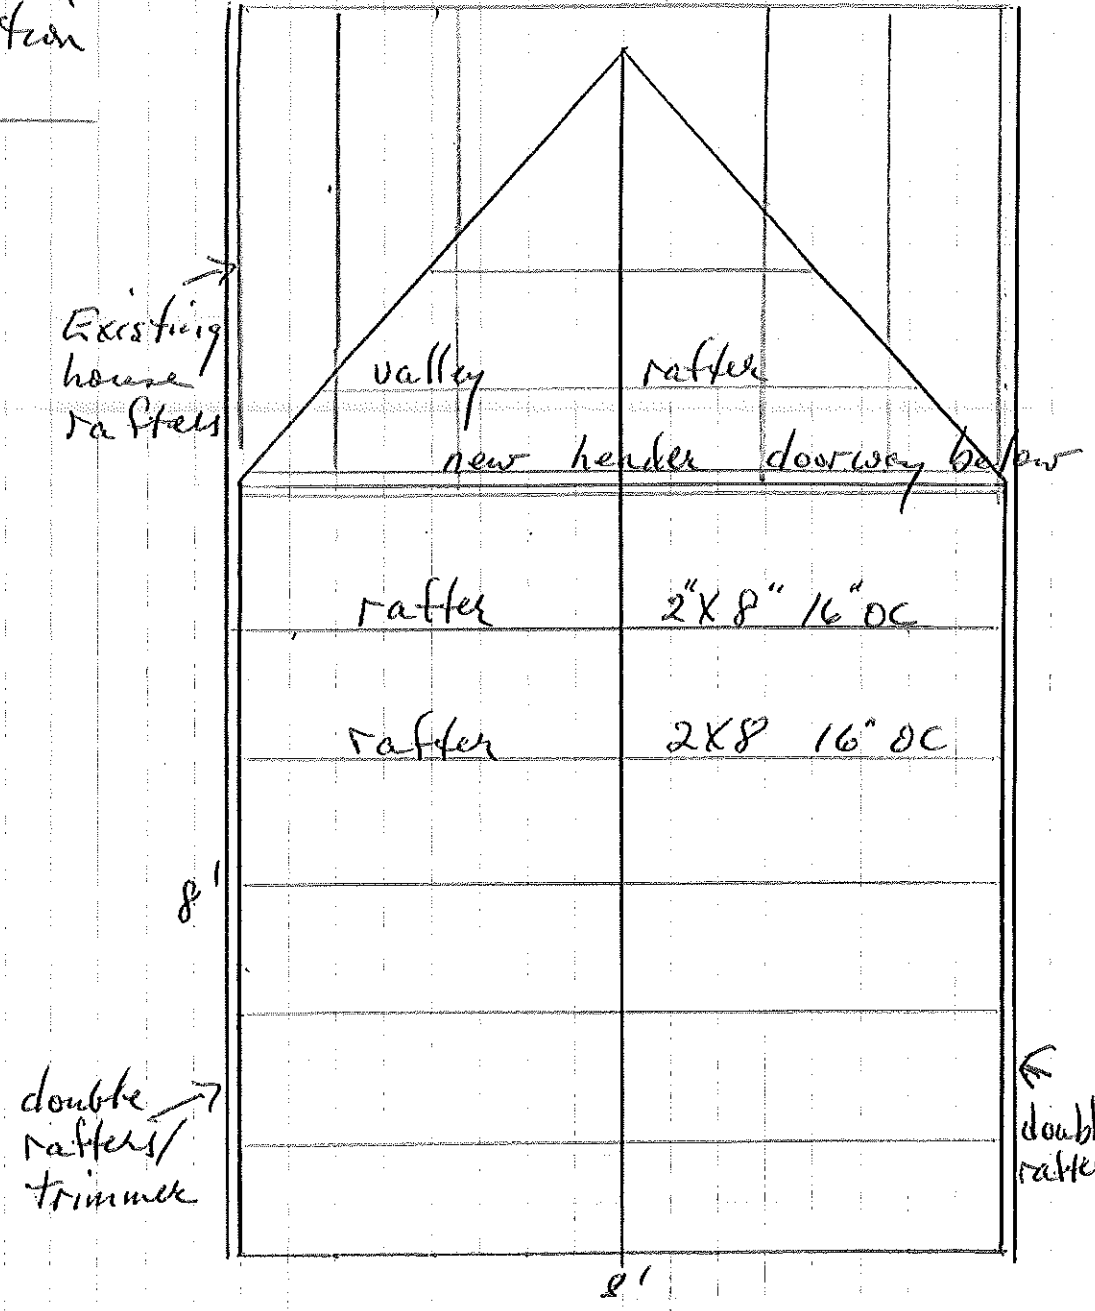 Existing
house
rafters
valley rafter
new header doorway below
rafter 2"X8" 16"OC
rafter 2X8 16"OC
8'
double
rafters/
trimmer
8'